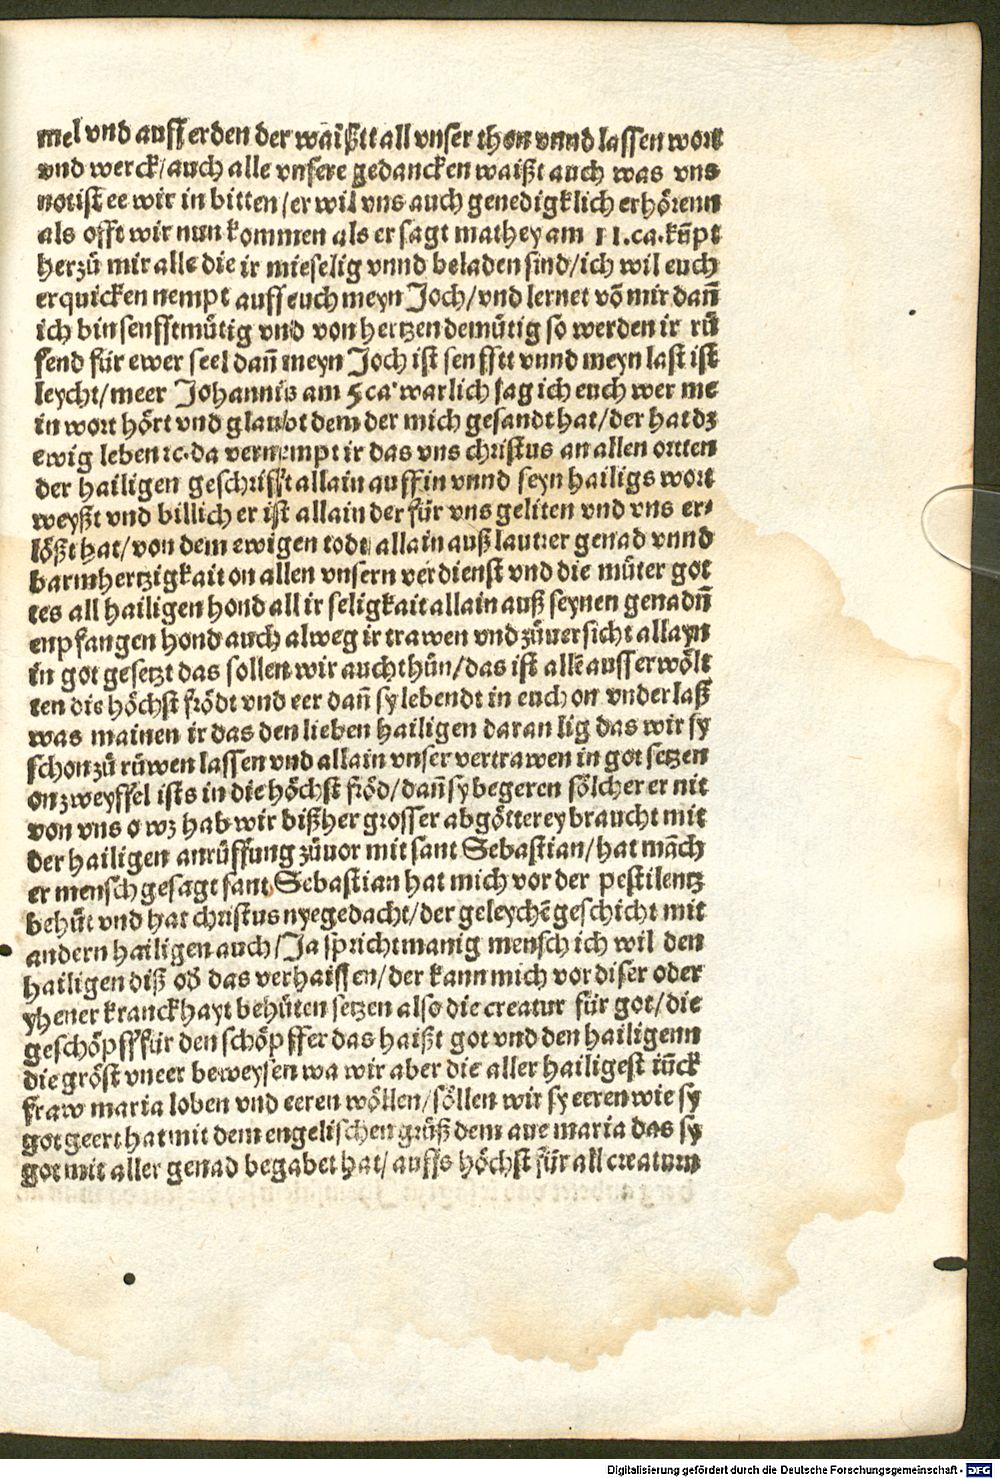 mel vnd auff erden der waißtt all vnser thon vnnd lassen wort
vnd werck/ auch alle vnsere gedancken waißt auch was vns
not ist ee wir in bitten/ er wil vns auch genedigklich erhörenn
als offt wir nun kommen als er sagt mathey am 11.ca. kũpt
her zů mir alle die ir mieselig vnnd beladen sind/ ich wil euch
erquicken nempt auff euch meyn Joch/ vnd lernet võ mir dañ
ich bin senfftmůtig vnd von hertzen demůtig so werden ir rů
fend für ewer seel dañ meyn Joch ist senfftt vnnd meyn last ist
leycht/ meer Johannis am 5 ca warlich sag ich euch wer me
in wort hört vnd glaubt dem der mich gesandt hat/ der hat dz
ewig leben ꝛc. da vernempt ir das vns christus an allen ortten
der hailigen geschrifft allain auff in vnnd seyn hailigs wort
weyßt vnd billich er ist allain der für vns geliten vnd vns er⸗
lößt hat/ von dem ewigen todt allain auß lautter genad vnnd
barmhertzigkait on allen vnsern verdienst vnd die můter got
tes all hailigen hond all ir seligkait allain auß seynen genadñ
enpfangen hond auch alweg ir trawen vnd zůuersicht allayn
in got gesetzt das sollen wir auch thůn/ das ist allẽ ausserwölt
ten die höchst frödt vnd eer dañ sy lebendt in euch on vnderlaß
was mainen ir das den lieben hailigen daran lig das wir sy
schon zů růwen lassen vnd allain vnser vertrawen in got setzen
on zweyffel ists in die höchst fröd/ dañ sy begeren sölcher er nit
von vns o wz hab wir bißher grosser abgötterey braucht mit
der hailigen anrůffung zůuor mit sant Sebastian/ hat mãch
er mensch gesagt sant Sebastian hat mich vor der pestilentz
behůt vnd hat christus nye gedacht/ der geleychẽ geschicht mit
andern hailigen auch/ Ja spricht manig mensch ich wil den
hailigen diß oď das verhaissen/ der kann mich vor diser oder
yhener kranckhayt behůten setzen also die creatur für got/ die
geschöpff für den schöpffer das haißt got vnd den hailigenn
die gröst vneer beweysen wa wir aber die aller hailigest iũck
fraw maria loben vnd eeren wöllen/ söllen wir sy eeren wie sy
got geert hat mit dem engelischen grůß dem aue maria das sy
got mit aller genad begabet hat/ auffs höchst für all creaturn
Digitalisierung gefördert durch die Deutsche Forschungsgemeinschaft - DFG